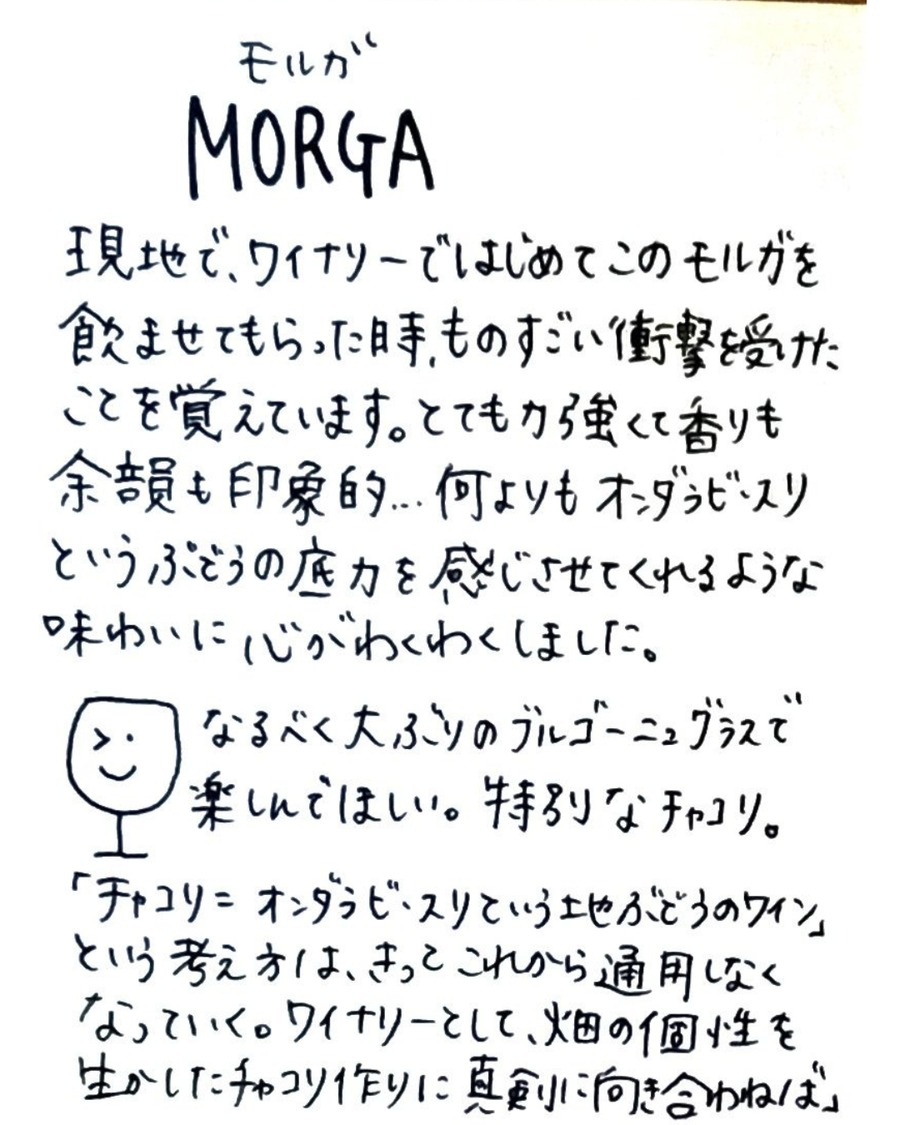 モルガ
MORGA
現地で、ワイナリーではじめてこのモルガを
飲ませてもらった時、ものすごい衝撃を受けた
ことを覚えています。とても力強くて香りも
余韻も印象的…何よりもオンダラビ・スリ
というぶどうの底力を感じさせてくれるような
味わいに心がわくわくしました。
なるべく大ぶりのブルゴーニュグラスで
楽しんでほしい。特別なチャコリ。
「チャコリ=オンダラビ・スリという土地ぶどうのワイン」
という考え方は、きっとこれから通用しなく
なっていく。ワイナリーとして、畑の個性を
生かしたチャコリ作りに真剣に向き合わねば」